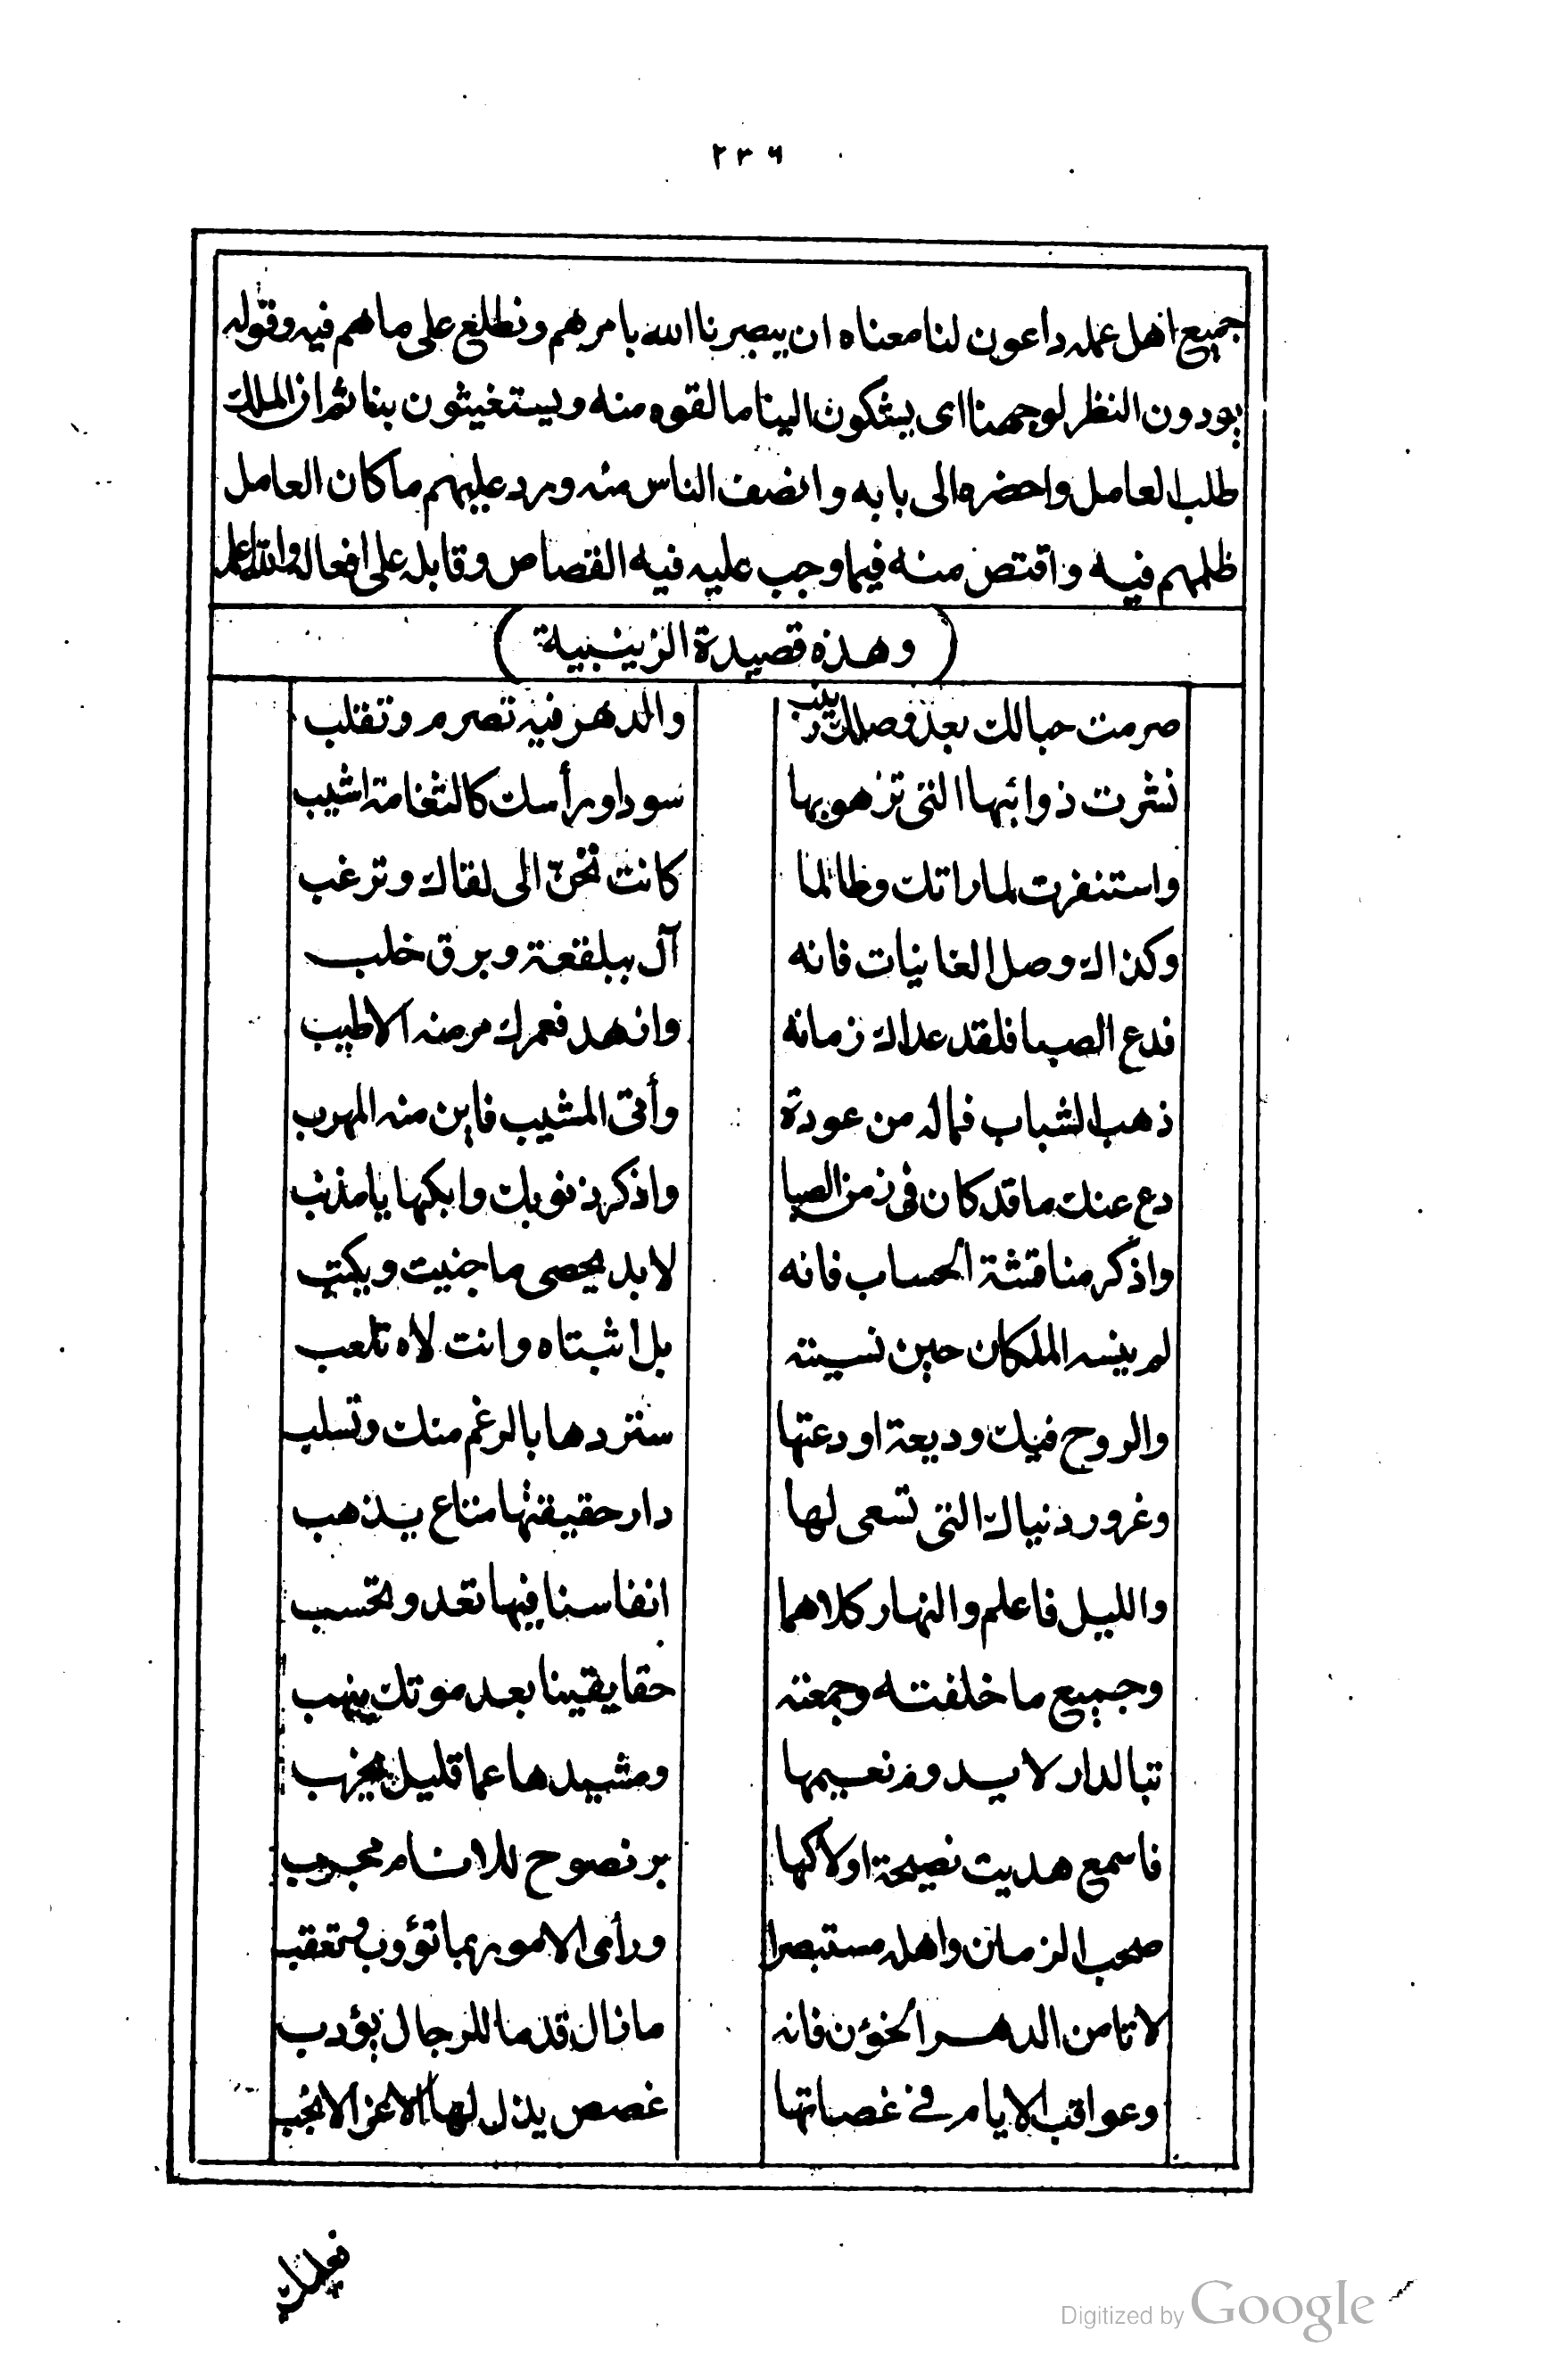 ٢٣٦
جميع اهل عمله داعون لنا معناه ان يبصرنا الله بامرهم ونطلع على ما هم فيه وقوله
يودون النظر لوجهنا اى يشكون الينا ما لقوه منه ويستغيثون بنا ثم ان الملك
طلب العامل واحضره الى بابه وانصف الناس منه ورد عليهم ما كان العامل
ظلمهم فيه واقتص منه فيما وجب عليه فيه القصاص وقابله على افعاله والله اعلم
(وهذه قصيدة الزينبية)
صرمت حبالك بعد وصلك زينب والدهر فيه تصرم وتقلب
نشرت ذوائبها التى تزهو بها سودا ورأسك كالثغامة اشيب
واستنفرت لما راتك وطالما كانت تحنّ الى لقاك وترغب
وكذاك وصل الغانيات فانه آل ببلقعة وبرق خلب
فدع الصبا فلقد عداك زمانه وانهد فعمرك مر منه الاطيب
ذهب الشباب فماله من عودة وأتى المشيب فاين منه المهرب
دع عنك ما قد كان فى زمن الصبا واذكر ذنوبك وابكها يا مذنب
واذكر مناقشة الحساب فانه لابد يحصى ما جنيت ويكتب
لم ينسه الملكان حين نسيته بل اثبتاه وانت لاه تلعب
والروح فيك وديعة اودعتها ستردها بالرغم منك وتسلب
وغرور دنياك التى تسعى لها دار حقيقتها متاع يذهب
والليل فاعلم والنهار كلاهما انفاسنا فيها تعد وتحسب
وجميع ما خلفته وجمعته حقا يقينا بعد موتك ينهب
تبا لدار لا يدوم نعيمها ومشيدها عما قليل يخرب
فاسمع هديت نصيحة اولاكها بر نصوح للانام مجرب
صحب الزمان واهله مستبصرا ورأى الامور بما تؤوب وتعقب
لا تامن الدهر الخؤن فانه مازال قدما للرجال يؤدب
وعواقب الايام فى غصاتها غصص يذل لها الاعز الانجب
فعليك
Digitized by Google